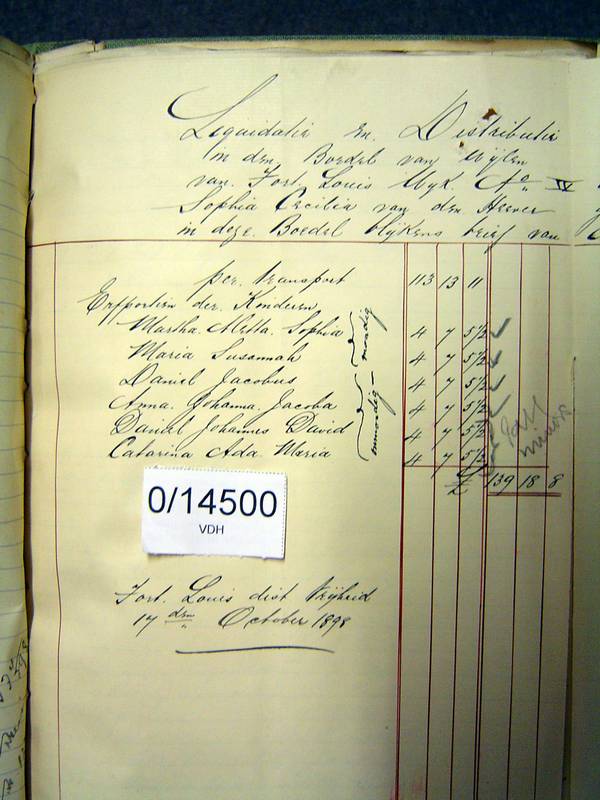 Liquidatie en Distributie
in den Boedel van wijlen
van Fort Louis Wyk No IV
Sophia Cecilia van den Heever
in deze Boedel blijkens brief van
per transport 113 13 11
Erfportien der Kinderen
Martha Aletta Sophia 4 7 5½
Maria Susannah 4 7 5½
mondig
Daniel Jacobus 4 7 5½
Anna Johanna Jacoba 4 7 5½
Daniel Johannes David 4 7 5½
Catarina Ada Maria 4 7 5½
onmondig
minor
£ 139 18 8
0/14500
VDH
Fort Louis dist Vrijheid
17 den October 1898